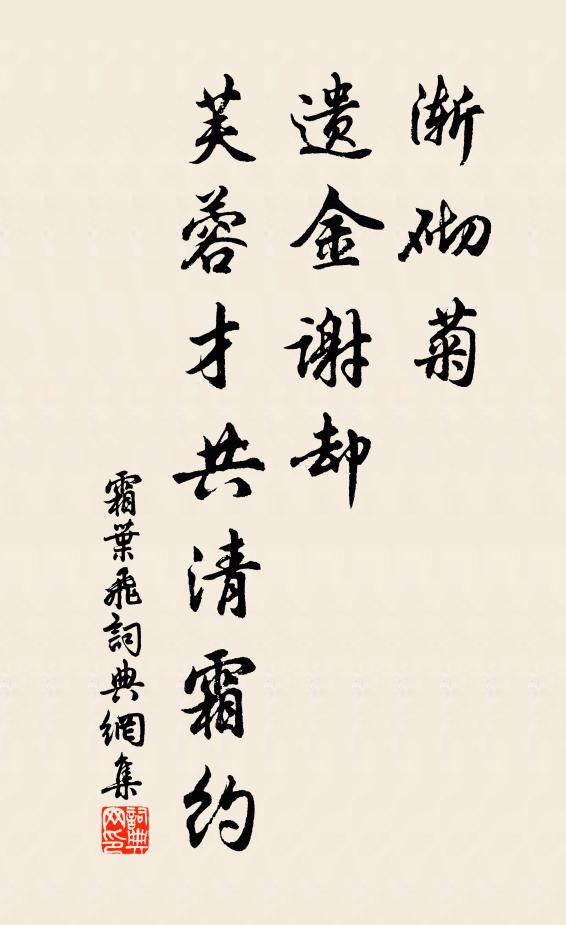 渐砌菊
遗金谢却
芙蓉才共清霜约
霜葉飛詞典網集
詞典网印